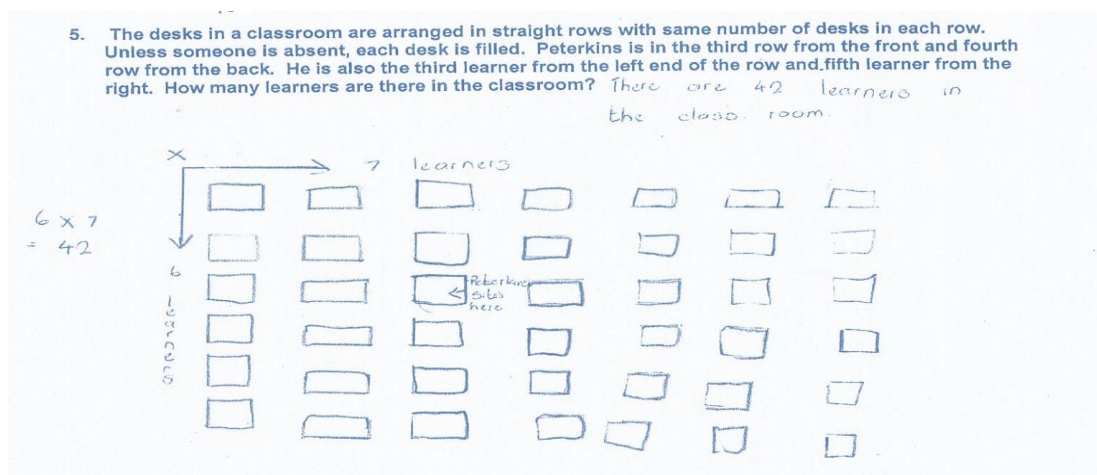 5. The desks in a classroom are arranged in straight rows with same number of desks in each row.
Unless someone is absent, each desk is filled. Peterkins is in the third row from the front and fourth
row from the back. He is also the third learner from the left end of the row and.fifth learner from the
right. How many learners are there in the classroom? There are 42 learners in
the class. room.
X
7 learners
6 x 7
= 42
6 learners
Peterkins
sits
here